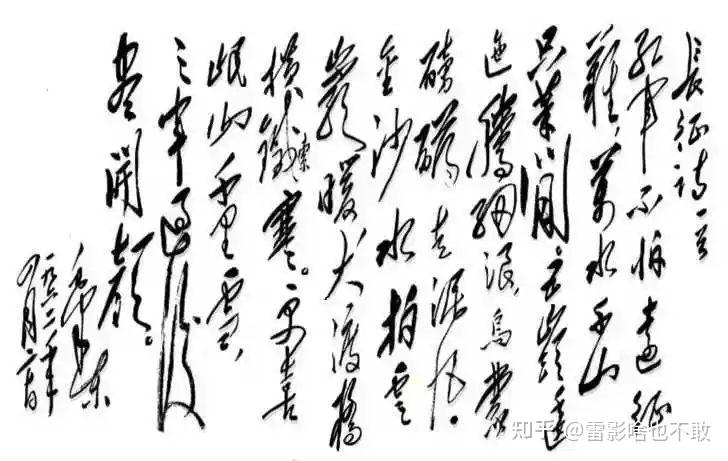 長征詩一首
紅軍不怕遠征
難,萬水千山
只等閒。五嶺逶
迤騰細浪,烏蒙
磅礴走泥丸。
金沙水拍雲
巖暖,大渡橋
橫鐵索寒。更喜
岷山千里雪,
三軍過後
盡開顏。
毛澤東
一九六二年
四月
知乎 @雷影啥也不敢